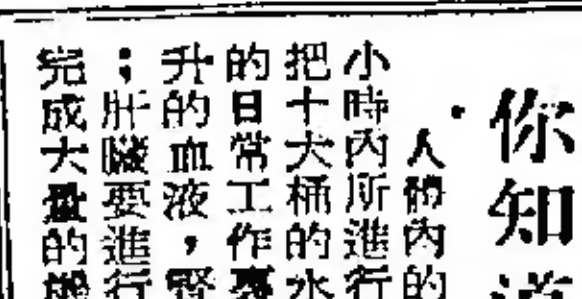 你知道
人體內的
小時內所進行
把十大桶的水
的日常工作
升的血液，腎
；肝臟要進行
完成大量的